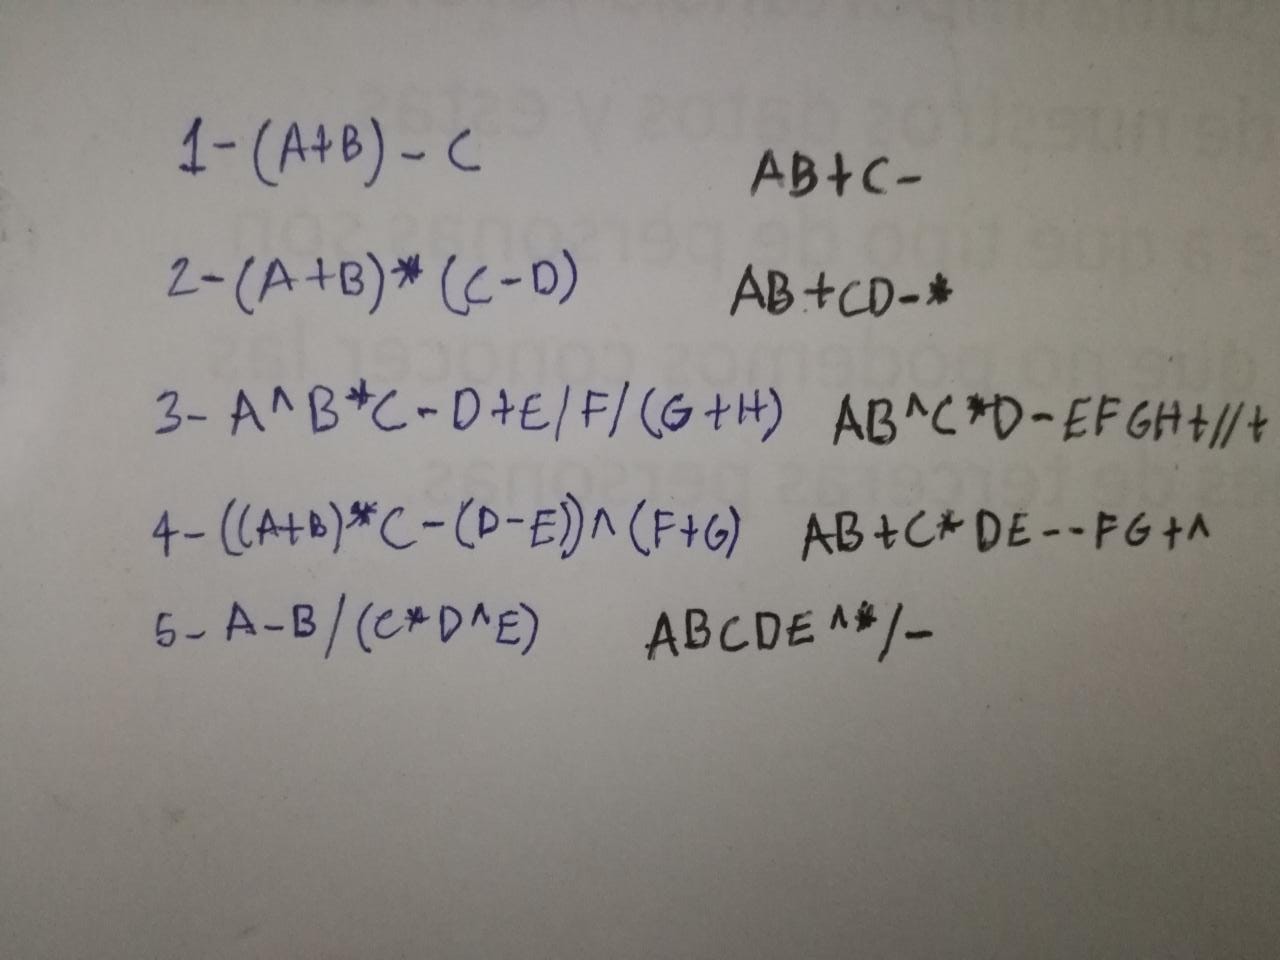 1-(A+B)-C AB+C-
2-(A+B)*(C-D) AB+CD-*
3- A^B*C-D+E/F/(G+H) AB^C*D-EFGH+//+
4-((A+B)*C-(D-E))^(F+G) AB+C*DE--FG+^
5- A-B/(C*D^E) ABCDE^*/-